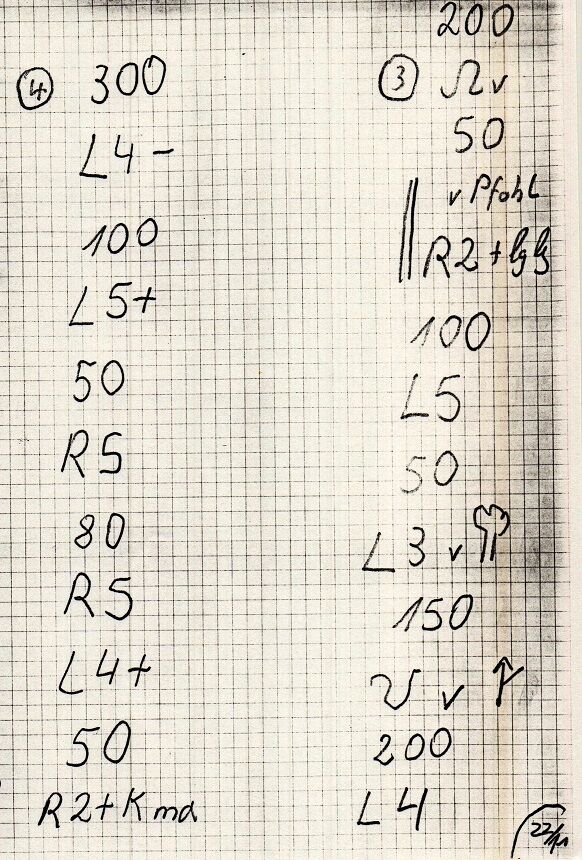 ④ 300
L4-
100
L5+
50
R5
80
R5
L4+
50
R2+K ma
200
③ Ω v
50
v Pfahl
R2+lglg
100
L5
50
L3 v
150
v
200
L4
22/11